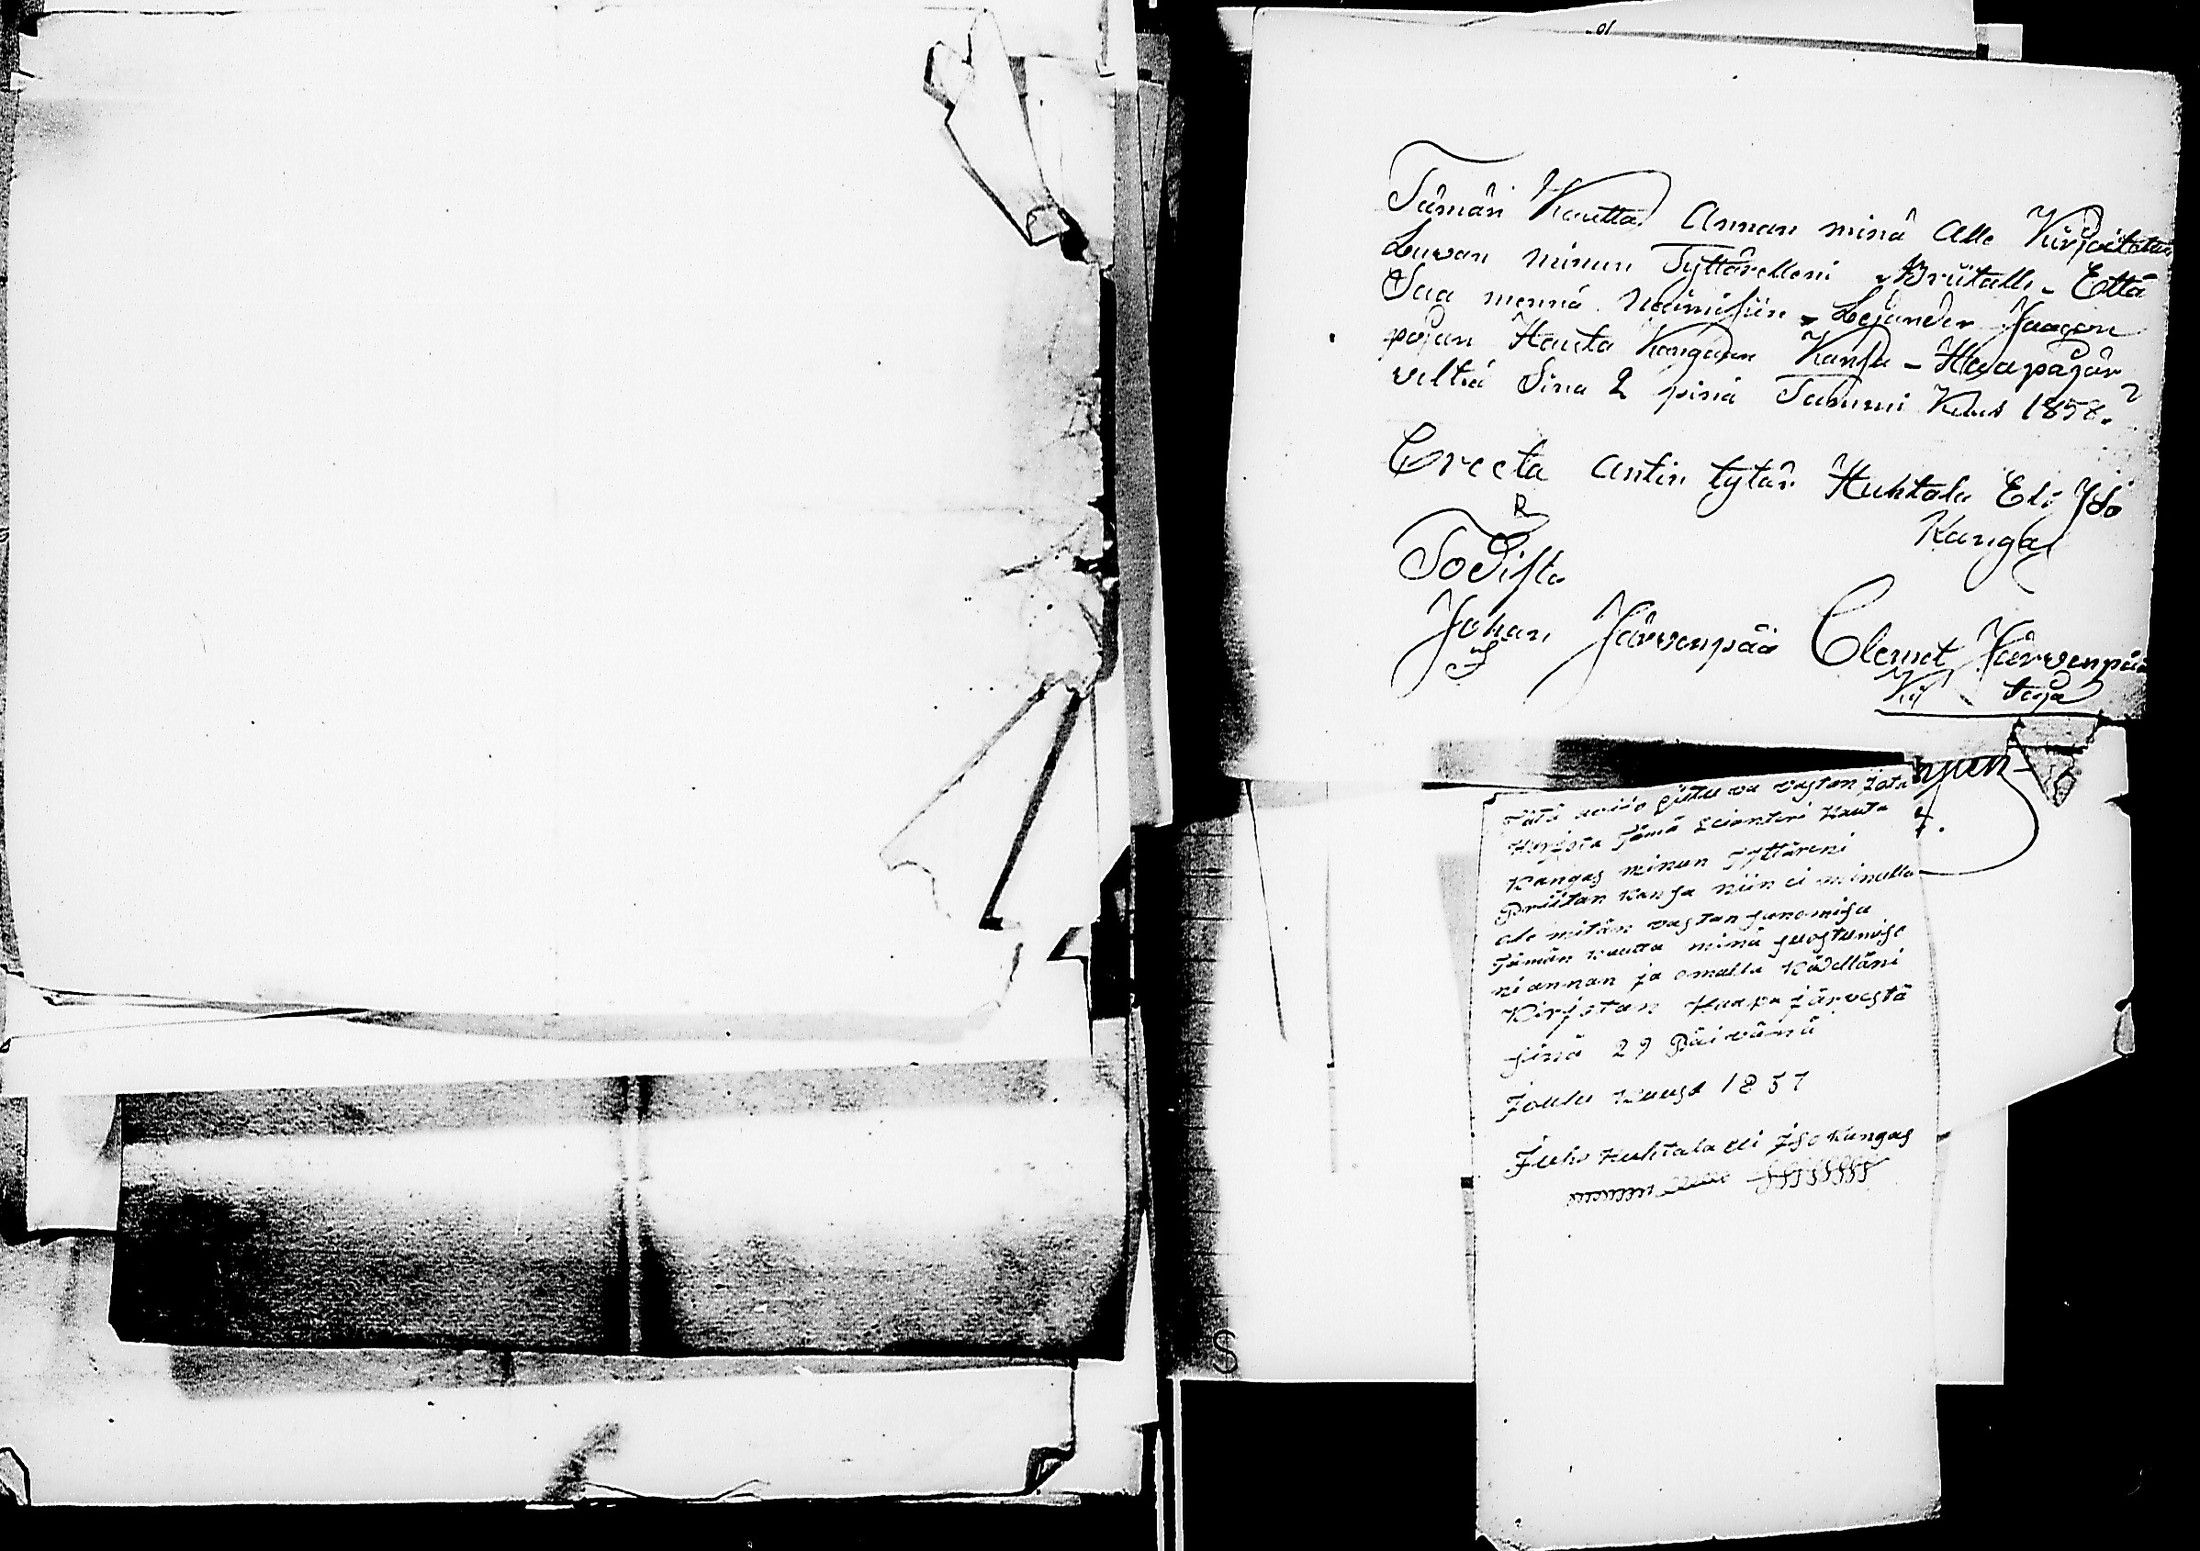 Tämän Kautta Annan minä Alle Kirjoitetun
Luvan minun Tyttärelleni Briitalle - Että
Saa mennä Naimisiin Lejander Jaacon
pojan Hauta Kangaan Kansa - Haapajär
veltä Sinä 2 pinä Tammi Kuus 1858.
Creeta Antin tytär Huhtala Eli Iso
Kangas
Todista
Johan Järvenpää Clemet Järvenpää
Kir teja
Tätä avio vastan jota
Kirjota Tämä Leianteri Hauta
Kangas minun Tyttäreni
Priitan Kansa niin ei minulla
ole mitän vastan sanomisa
Tämän Kautta minä suostumise
ni annan ja omalla Kädelläni
Kirjotan Haapa järvestä
sinä 29 Päivänä
Joulu Kuusa 1857
Juho Huhtala eli Iso Kangas